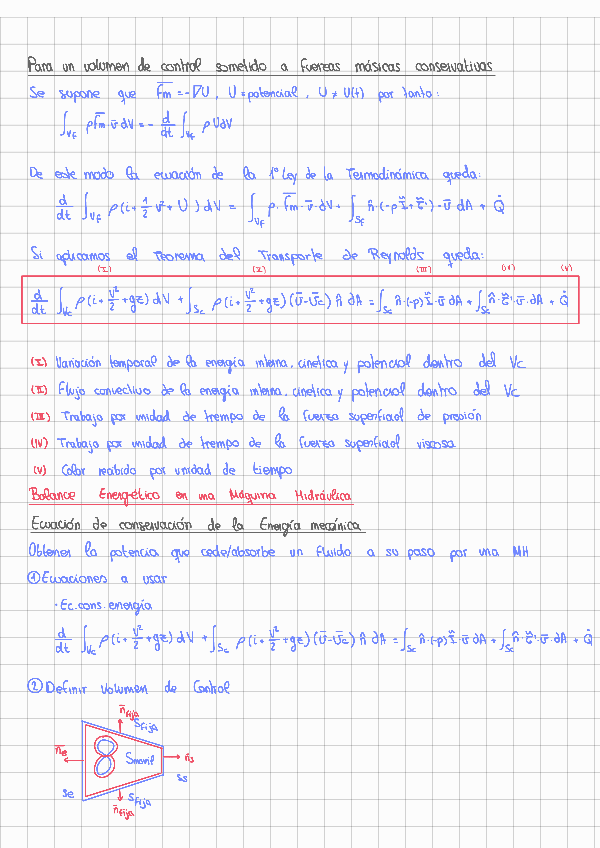 Para un volumen de control sometido a fuerzas másicas conservativas
Se supone que F̄m = -∇U, U = potencial, U ≠ U(t) por tanto:
∫_Vf ρ f̄m · v̄ dV = - d/dt ∫_Vf ρ U dV
De este modo la ecuación de la 1ª Ley de la Termodinámica queda:
d/dt ∫_Vf ρ (i + 1/2 v² + U) dV = ∫_Vf ρ · f̄m · v̄ · dV + ∫_Sf n̂ · (-ρ I + τ') · v̄ dA + Q̇
Si aplicamos el Teorema del Transporte de Reynolds queda:
(I) (I) (III) (IV) (V)
d/dt ∫_Vc ρ (i + v²/2 + gz) dV + ∫_Sc ρ (i + v²/2 + gz) (v̄ - v̄c) n̂ dA = ∫_Sc n̂ · (-p) I · v̄ dA + ∫_Sc n̂ · τ' · v̄ · dA + Q̇
(I) Variación temporal de la energía interna, cinética y potencial dentro del Vc
(II) Flujo convectivo de la energía interna, cinética y potencial dentro del Vc
(III) Trabajo por unidad de tiempo de la fuerza superficial de presión
(IV) Trabajo por unidad de tiempo de la fuerza superficial viscosa
(V) Calor recibido por unidad de tiempo
Balance Energético en una Máquina Hidráulica
Ecuación de conservación de la Energía mecánica
Obtener la potencia que cede/absorbe un fluido a su paso por una MH
① Ecuaciones a usar
· Ec. cons. energía
d/dt ∫_Vc ρ (i + v²/2 + gz) dV + ∫_Sc ρ (i + v²/2 + gz) (v̄ - v̄c) n̂ dA = ∫_Sc n̂ · (-p) I · v̄ dA + ∫_Sc n̂ · τ' · v̄ · dA + Q̇
② Definir Volumen de Control
n̄fija
Sfija
n̄e
Smovil
n̄s
Ss
Se
Sfija
n̄fija